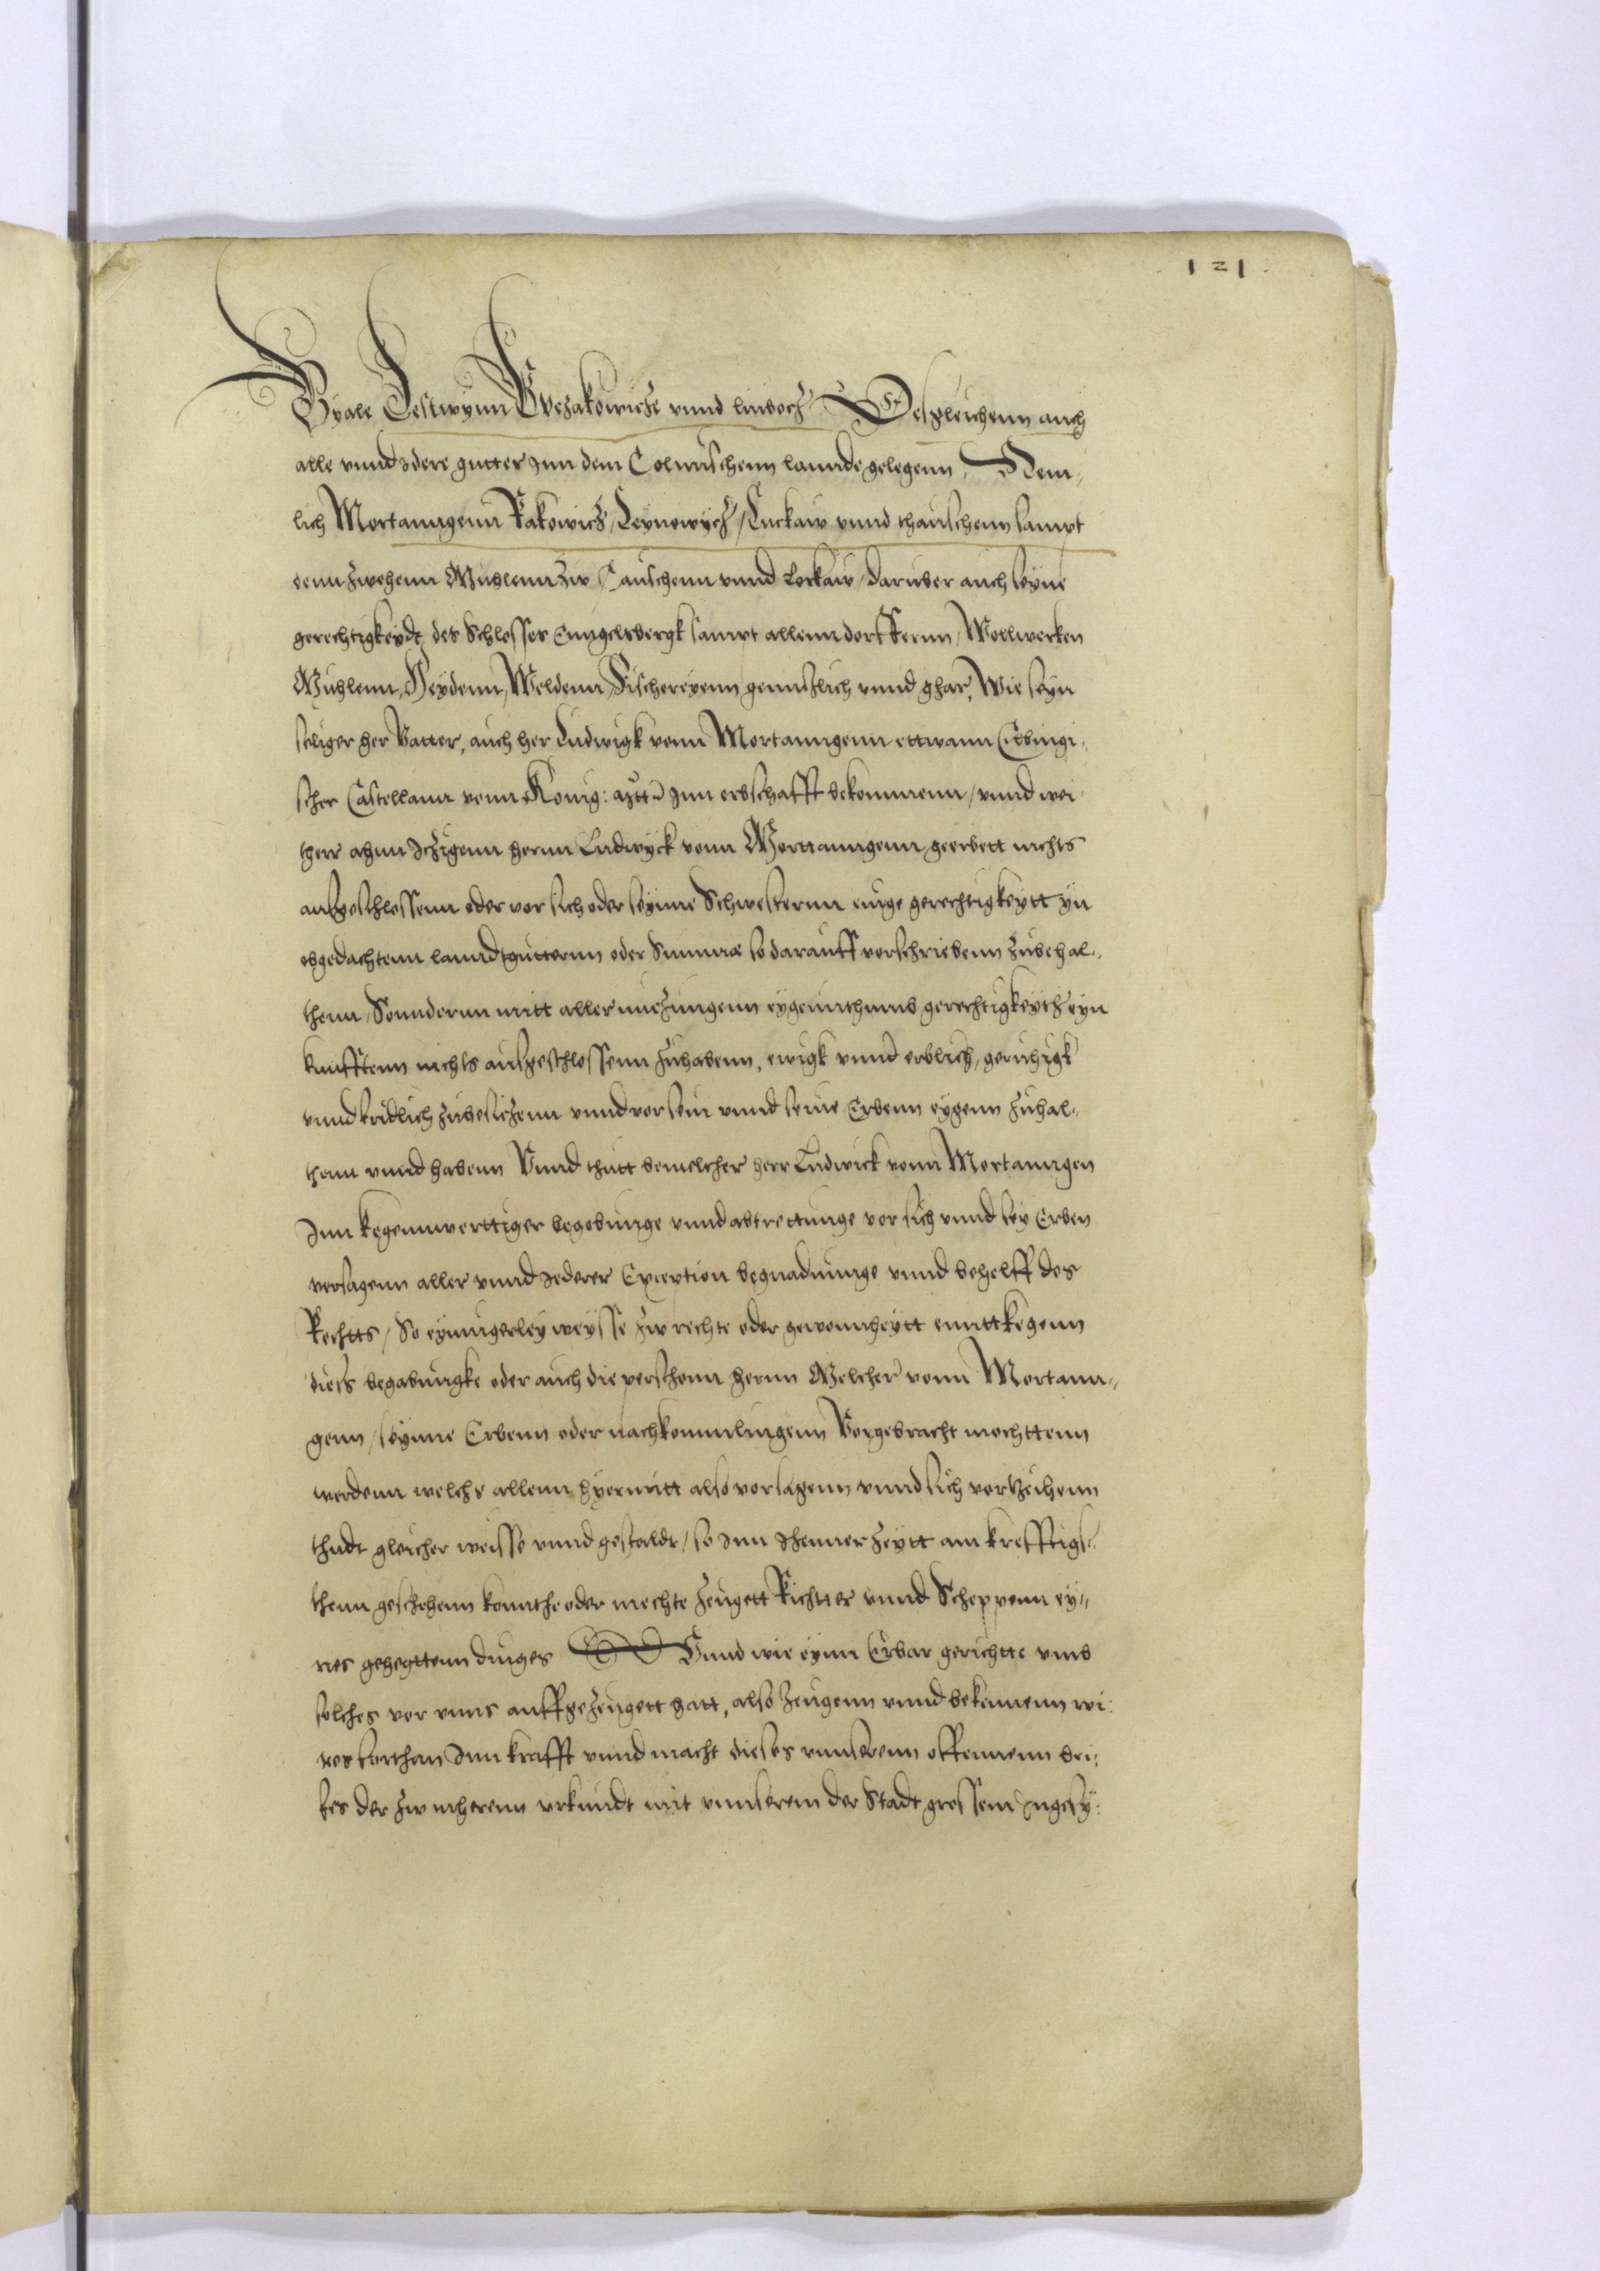 121
Byale Jestwynn Wezakowicze vnnd linboch Desgleichenn auch
alle vnnd idere gutter Inn dem Colmischenn lannde gelegenn, Nem-
lich Mortanngenn Rakowicz, Leynowych, Luckaw vnnd thauschenn sampt
denn zwehenn Muhlenn zw Tauschenn vnnd Lockaw, daruber auch seyne
gerechtigkeydt des Schlosses Enngelsbergk sampt allenn dorffernn, Wollwerken
Muhlenn, Heydenn, Weldenn, Fischereyenn gennszlich vnnd ghar, Wie seyn
seliger her Vatter, auch her Ludwigk vonn Mortanngenn ettwann Elbingi-
scher Castellann vonn Konig: Inn erbschafft bekommenn, vnnd wei
ther ahnn Itzigenn hernn Ludwyck vonn Morttanngenn geerbett nichts
ausgeschlossenn oder vor sich oder seynne Schwesternn einge gerechtigkeytt yn
obgedachtenn lanndtguttern oder Summa so darauff vorschriebenn zubehal-
thenn, Sonndernn mitt aller nuczungenn eygennthumb gerechtigkeyth eyn
kunfftenn nichts ausgeschlossenn zuhabenn, ewigk vnnd erblich, geruhigk
vnnd fridlich zubesiczenn vnnd vor sein vnnd seine Erbenn eygenn zuhal-
thenn vnnd habenn Vnnd thutt bemelther herr Ludwick vonn Mortanngen
Inn kegennwerttiger begebunge vnnd abtrettunge vor sich vnnd sey Erben
versagenn aller vnnd Jederer Exception begnadnunge vnnd behelff des
Rechtts, So eynngerley weysse zw rechte oder gewonnheytt enntkegenn
diess begabungke oder auch die perschonn hernn Melcher vonn Mortann-
genn, seynne Erbenn oder nachkommlingenn Vorgebracht mochttenn
werdenn welchs allenn hyermitt also vorsagenn vnnd sich vortzeihenn
thudt gleicher weisse vnnd gestaldt, so Inn Ihenner zeytt am krefftigs-
thenn geschehenn konnthe oder mechte zeugett Richtter vnnd Scheppenn ey-
nes gehegttenn dinges Vnnd wie eynn Erbar gerichtte vmb
solches vor vnns auffgezeugett hatt, also zeugenn vnnd bekennenn wi
res forthan Inn krafft vnnd macht dieses vnnserenn offennenn bri-
fes der zw mherenn vrkundt mit vnnserem der Stadt grossem Ingesy-